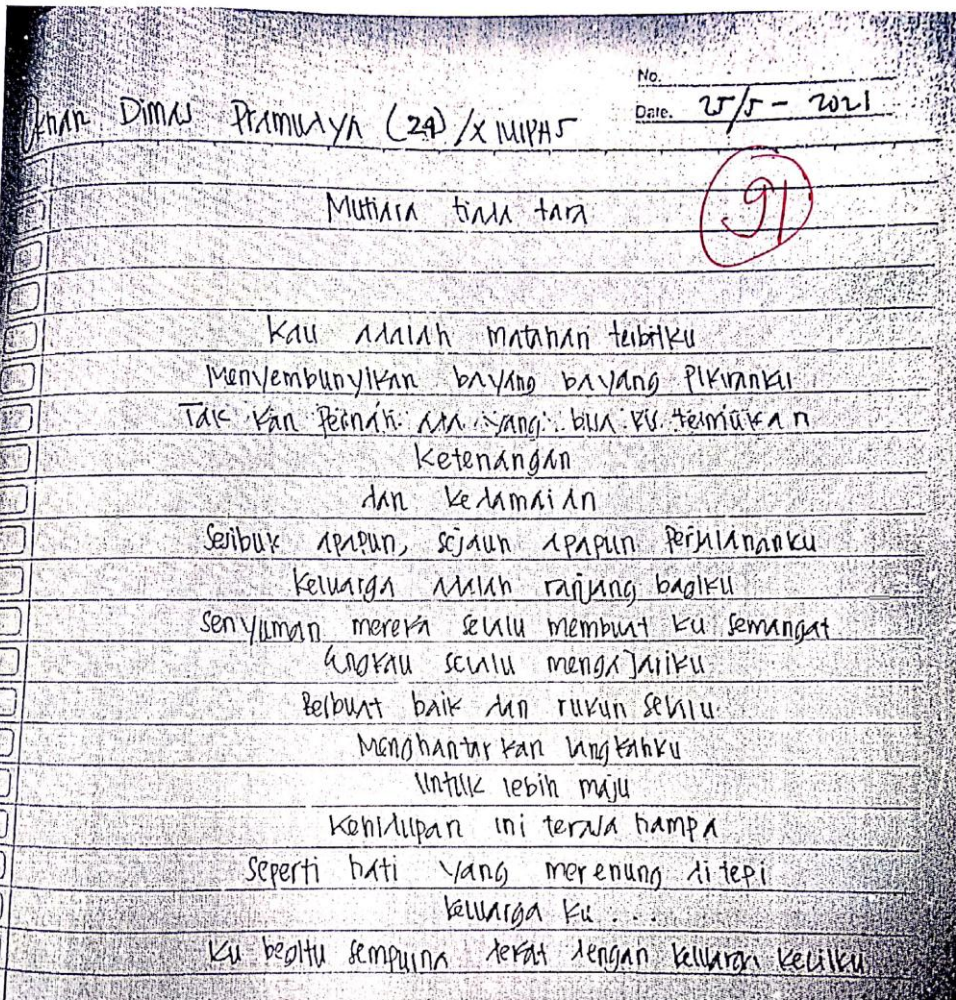 No.
Date. 25/5 - 2021
Dimas Pramudya (24) / X MIPA 5
91
Mutiara tiada tara
Kau adalah matahari terbitku
Menyembunyikan bayang bayang pikiranku
Tak kan pernah ada yang bisa ku temukan
Ketenangan
dan kedamaian
Seribuk apapun, sejauh apapun perjalananku
Keluarga adalah ranjang bagiku
Senyuman mereka selalu membuat ku semangat
Engkau selalu mengajariku
Berbuat baik dan rukun selalu.
Menghantar kan langkahku
Untuk lebih maju
Kehidupan ini terasa hampa
Seperti hati yang merenung di tepi
Keluarga ku . . .
Ku begitu sempurna dekat dengan keluarga kecilku